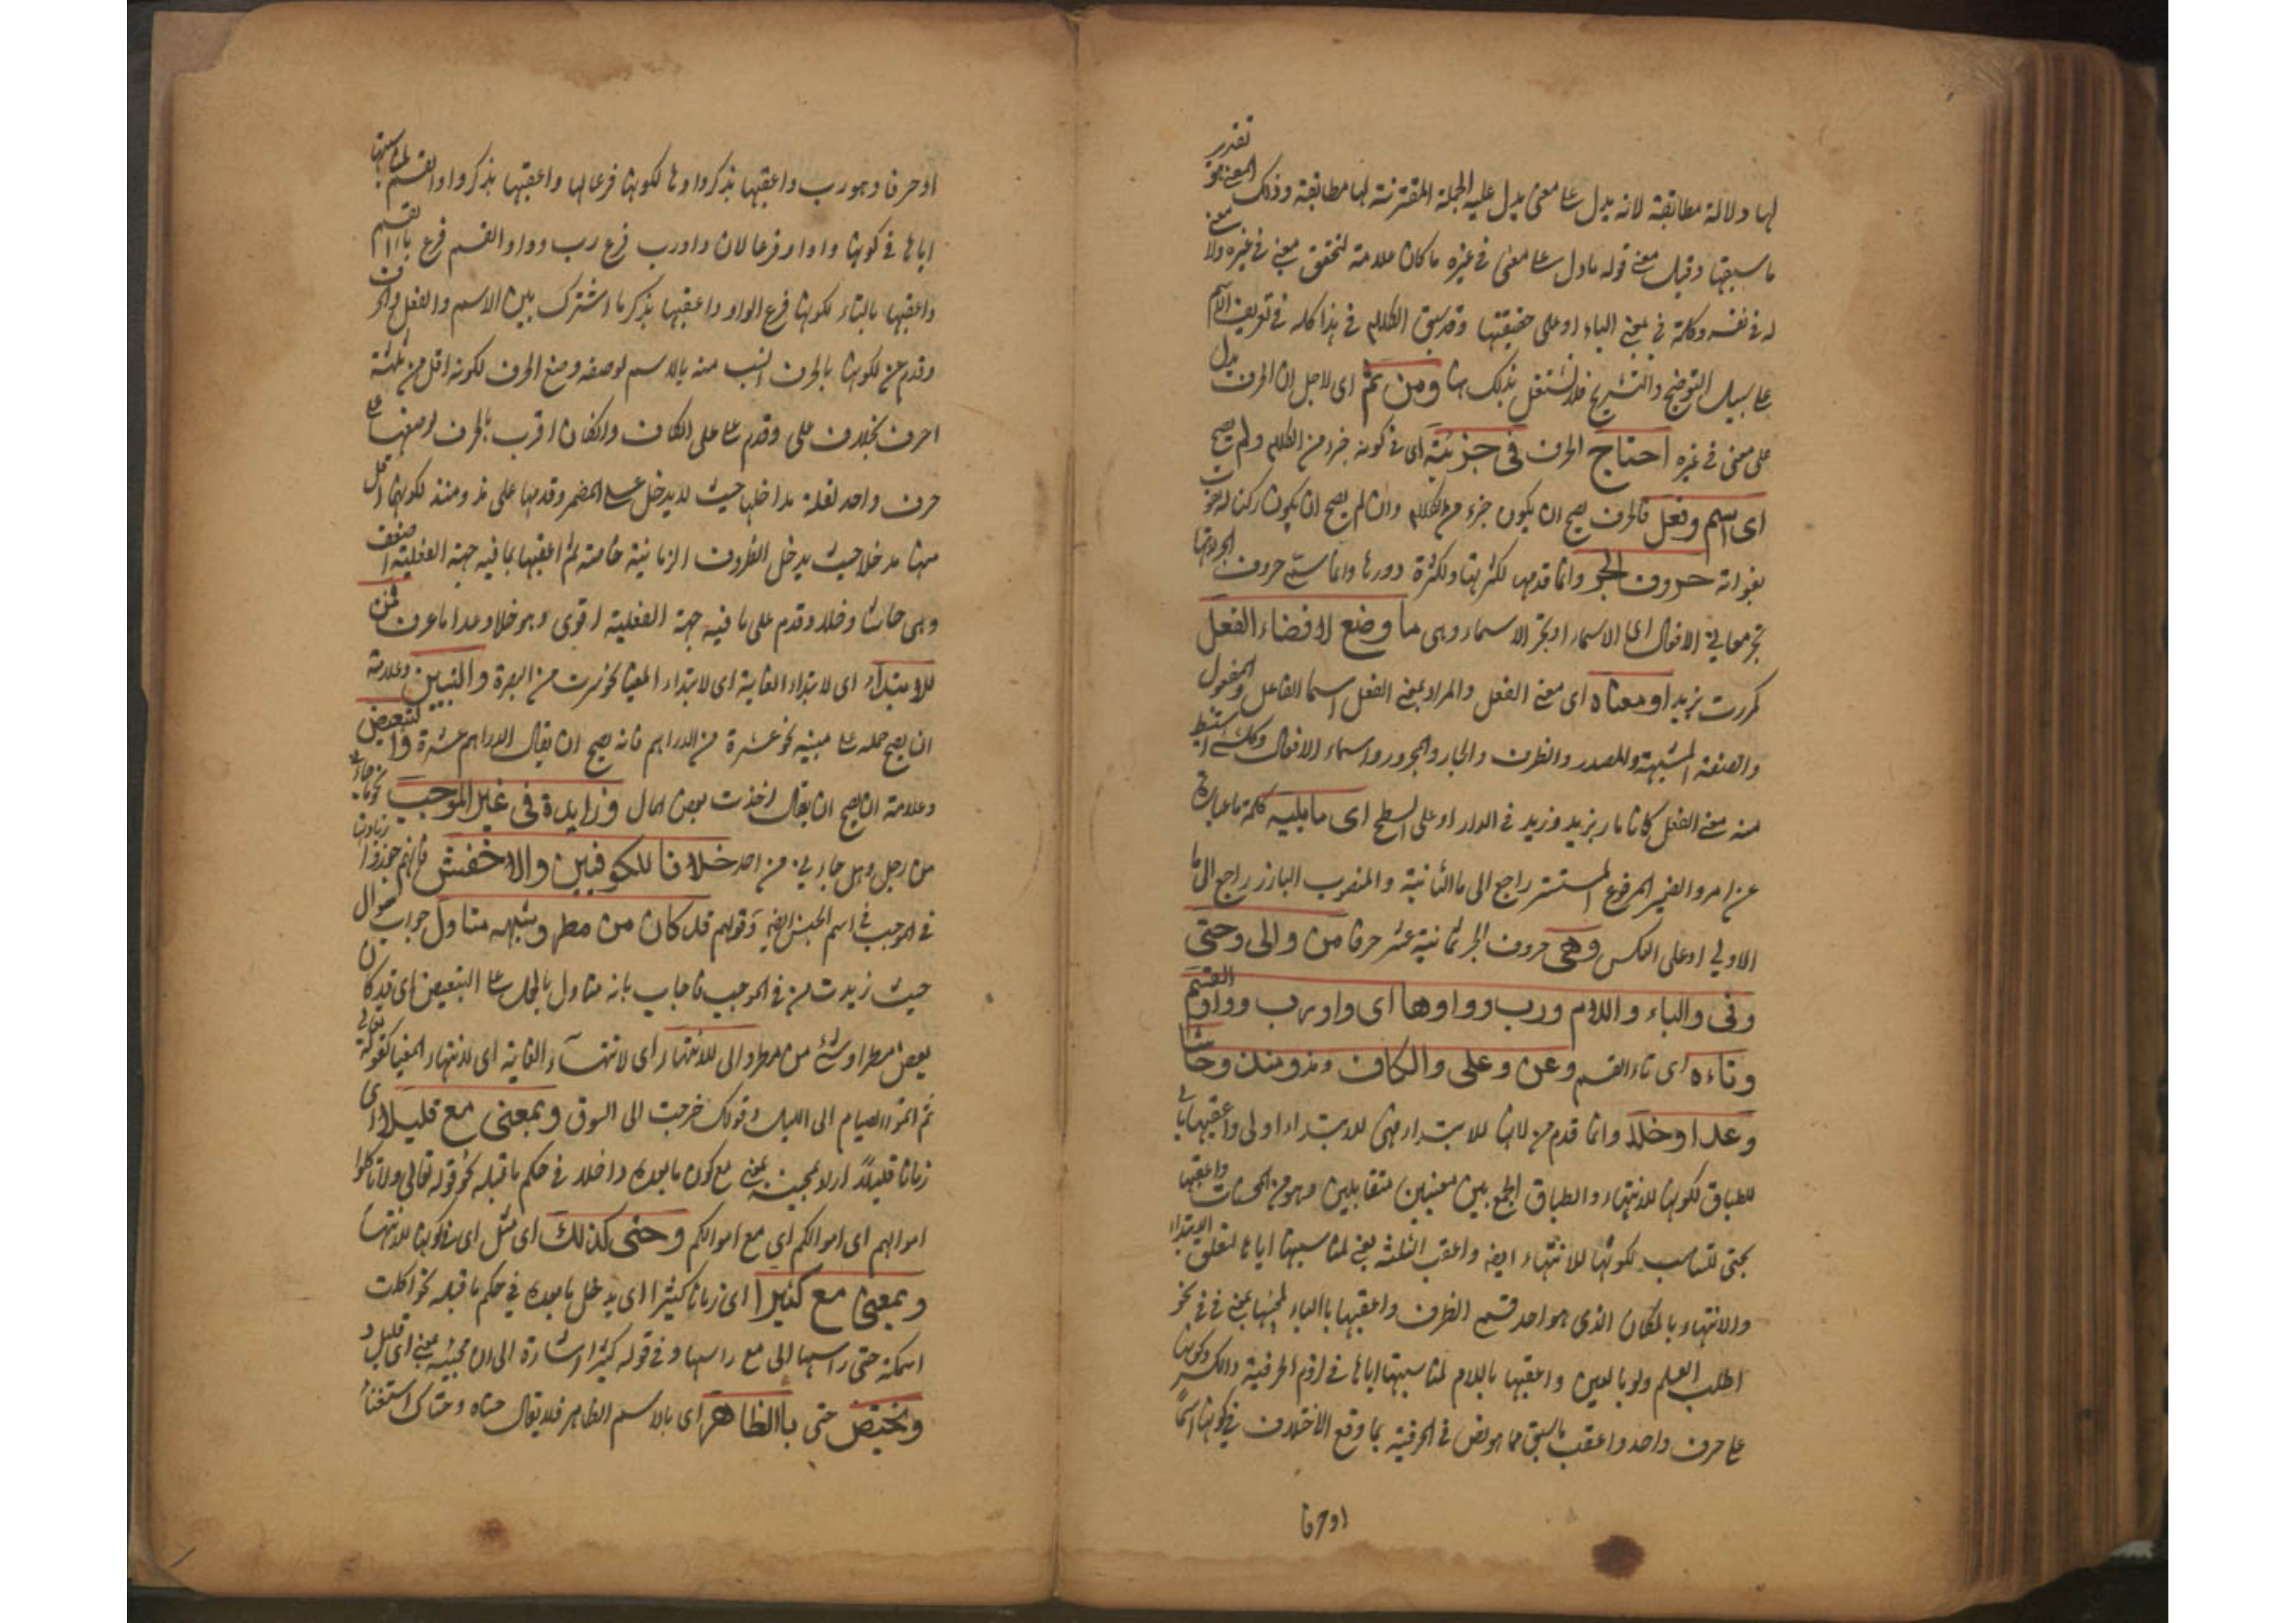 لها دلالة مطابقة لانه يدل على معنى يدل عليه الجملة المقترنة لها مطابقة وذلك المعنى هو تقدير
ما سبقها وقيل معنى قوله ما دل على معنى في غيره ما كان علامة لتحقق معنى في غيره ولا معنى
له في نفسه وكلمة في بمعنى الباء او على حقيقتها وقد سبق الكلام في هذا كله في تعريف الاسم
على سبيل التوضيح والتشريح فلا نشتغل بذلك هنا ومن ثم اى لاجل ان الحرف يدل
على معنى في غيره احتاج الحرف فى جزئيته اى في كونه جزء من الكلام ولم يصح
اى اسم وفعل فالحرف يصح ان يكون جزء من الكلام وان لم يصح ان يكون ركنا له
حروف الجر وانما قدمها لكثرتها ولكثرة دورها وانما سمى حروف الجر لانها
تجر معاني الافعال الى الاسماء او تجر الاسماء وهى ما وضع لافضاء الفعل
كمررت بزيد او معناه اى معنى الفعل والمراد بمعنى الفعل اسما الفاعل والمفعول
والصفة المشبهة والمصدر والظرف والجار والمجرور واسماء الافعال وكل شئ استنبط
منه معنى الفعل كانا مار بزيد وزيد في الدار او على السطح اى ما يليه كلمة ما عبارة
عن امر والضمير المرفوع المستتر راجع الى ما الثانية والمنصوب البارز راجع الى ما
الاولي او على العكس وهى حروف الجر ثمانية عشر حرفا من والى وحتى
وفى والباء واللام ورب وواوها اى واو رب وواو القسم
وتاءه اى تاء القسم وعن وعلى والكاف ومذ ومنذ وحاشا
وعدا وخلا وانما قدم من لانها للابتداء فهى للابتداء اولى واعقبها بالى
للطباق لكونها للانتهاء والطباق الجمع بين معنيين متقابلين وهو من المحسنات واعقبها
بحتى للتناسب لكونها للانتهاء ايضا واعقب الثلثة بفي لمناسبتها اياها لتعلق الابتداء
والانتهاء بالمكان الذى هو احد قسم الظرف واعقبها بالباء لمجيئها بمعنى في في نحو
اطلب العلم ولو بالصين واعقبها باللام لمناسبتها اياها في لزوم الحرفية والكسر وكونها
على حرف واحد واعقب ما سبق مما هو نص في الحرفية بما وقع الاختلاف في كونها اسما
او حرفا
او حرفا وهو رب واعقبها بذكر واوها لكونها فرعا لها واعقبها بذكر واو القسم لمناسبتها
اياها في كونها واوا وفرعا لان واو رب فرع رب وواو القسم فرع باء القسم
واعقبها بالتاء لكونها فرع الواو واعقبها بذكر ما اشترك بين الاسم والفعل والحرف
وقدم عن لكونها بالحرف انسب منه بالاسم لوصفه وضع الحرف لكونه اقل من ثلثة
احرف بخلاف على وقدم على على الكاف وانكان اقرب بالحرف لوضعها على
حرف واحد لقلة مداخلها حيث لا يدخل على المضمر وقدمها على مذ ومنذ لكونهما اقل
منها مدخلا حيث يدخل الظروف الزمانية خاصة ثم اعقبها بما فيه جهة الفعلية اضعف
وهى حاشا وخلا وقدم على ما فيه جهة الفعلية اقوى وهو خلا وعدا فمن
للابتداء اى لابتداء الغاية اى لابتداء المغيا نحو سرت من البصرة والتبيين وعلامته
ان يصح حمله على مبينه نحو عشرة من الدراهم فانه يصح ان يقال الدراهم عشرة والتبعيض
وعلامته ان يصح ان يقال اخذت بعض المال وزايدة فى غير الموجب نحو ما جاءنى
من رجل وهل جاءني من احد خلافا للكوفيين والاخفش فانهم جوزوا زيادتها
في الموجب في اسم الجنس ايضا وقولهم قد كان من مطر وشبهه متاول جواب سؤال
حيث زيدت من في الموجب فاجاب بانه متاول بالحمل على التبعيض اى قد كان
بعض مطر او شئ من مطر والى للانتهاء اى لانتهاء الغاية اى لانتهاء المغيا كقوله تعالى
ثم اتموا الصيام الى الليل وقولك خرجت الى السوق وبمعنى مع قليلا اى
زمانا قليلا بمعنى مع كون ما بعده داخلا في حكم ما قبله نحو قوله تعالى ولا تاكلوا
اموالهم الى اموالكم اي مع اموالكم وحتى كذلك اى مثل الى في كونها للانتهاء
وبمعنى مع كثيرا اى زمانا كثيرا اى يدخل ما بعده في حكم ما قبله نحو اكلت
السمكة حتى راسها اى مع راسها وفي قوله كثيرا اشارة الى ان مجيئه بمعنى الى قليل
ويختص حتى بالظاهر اى بالاسم الظاهر فلا يقال حتاه وحتاك استغناء